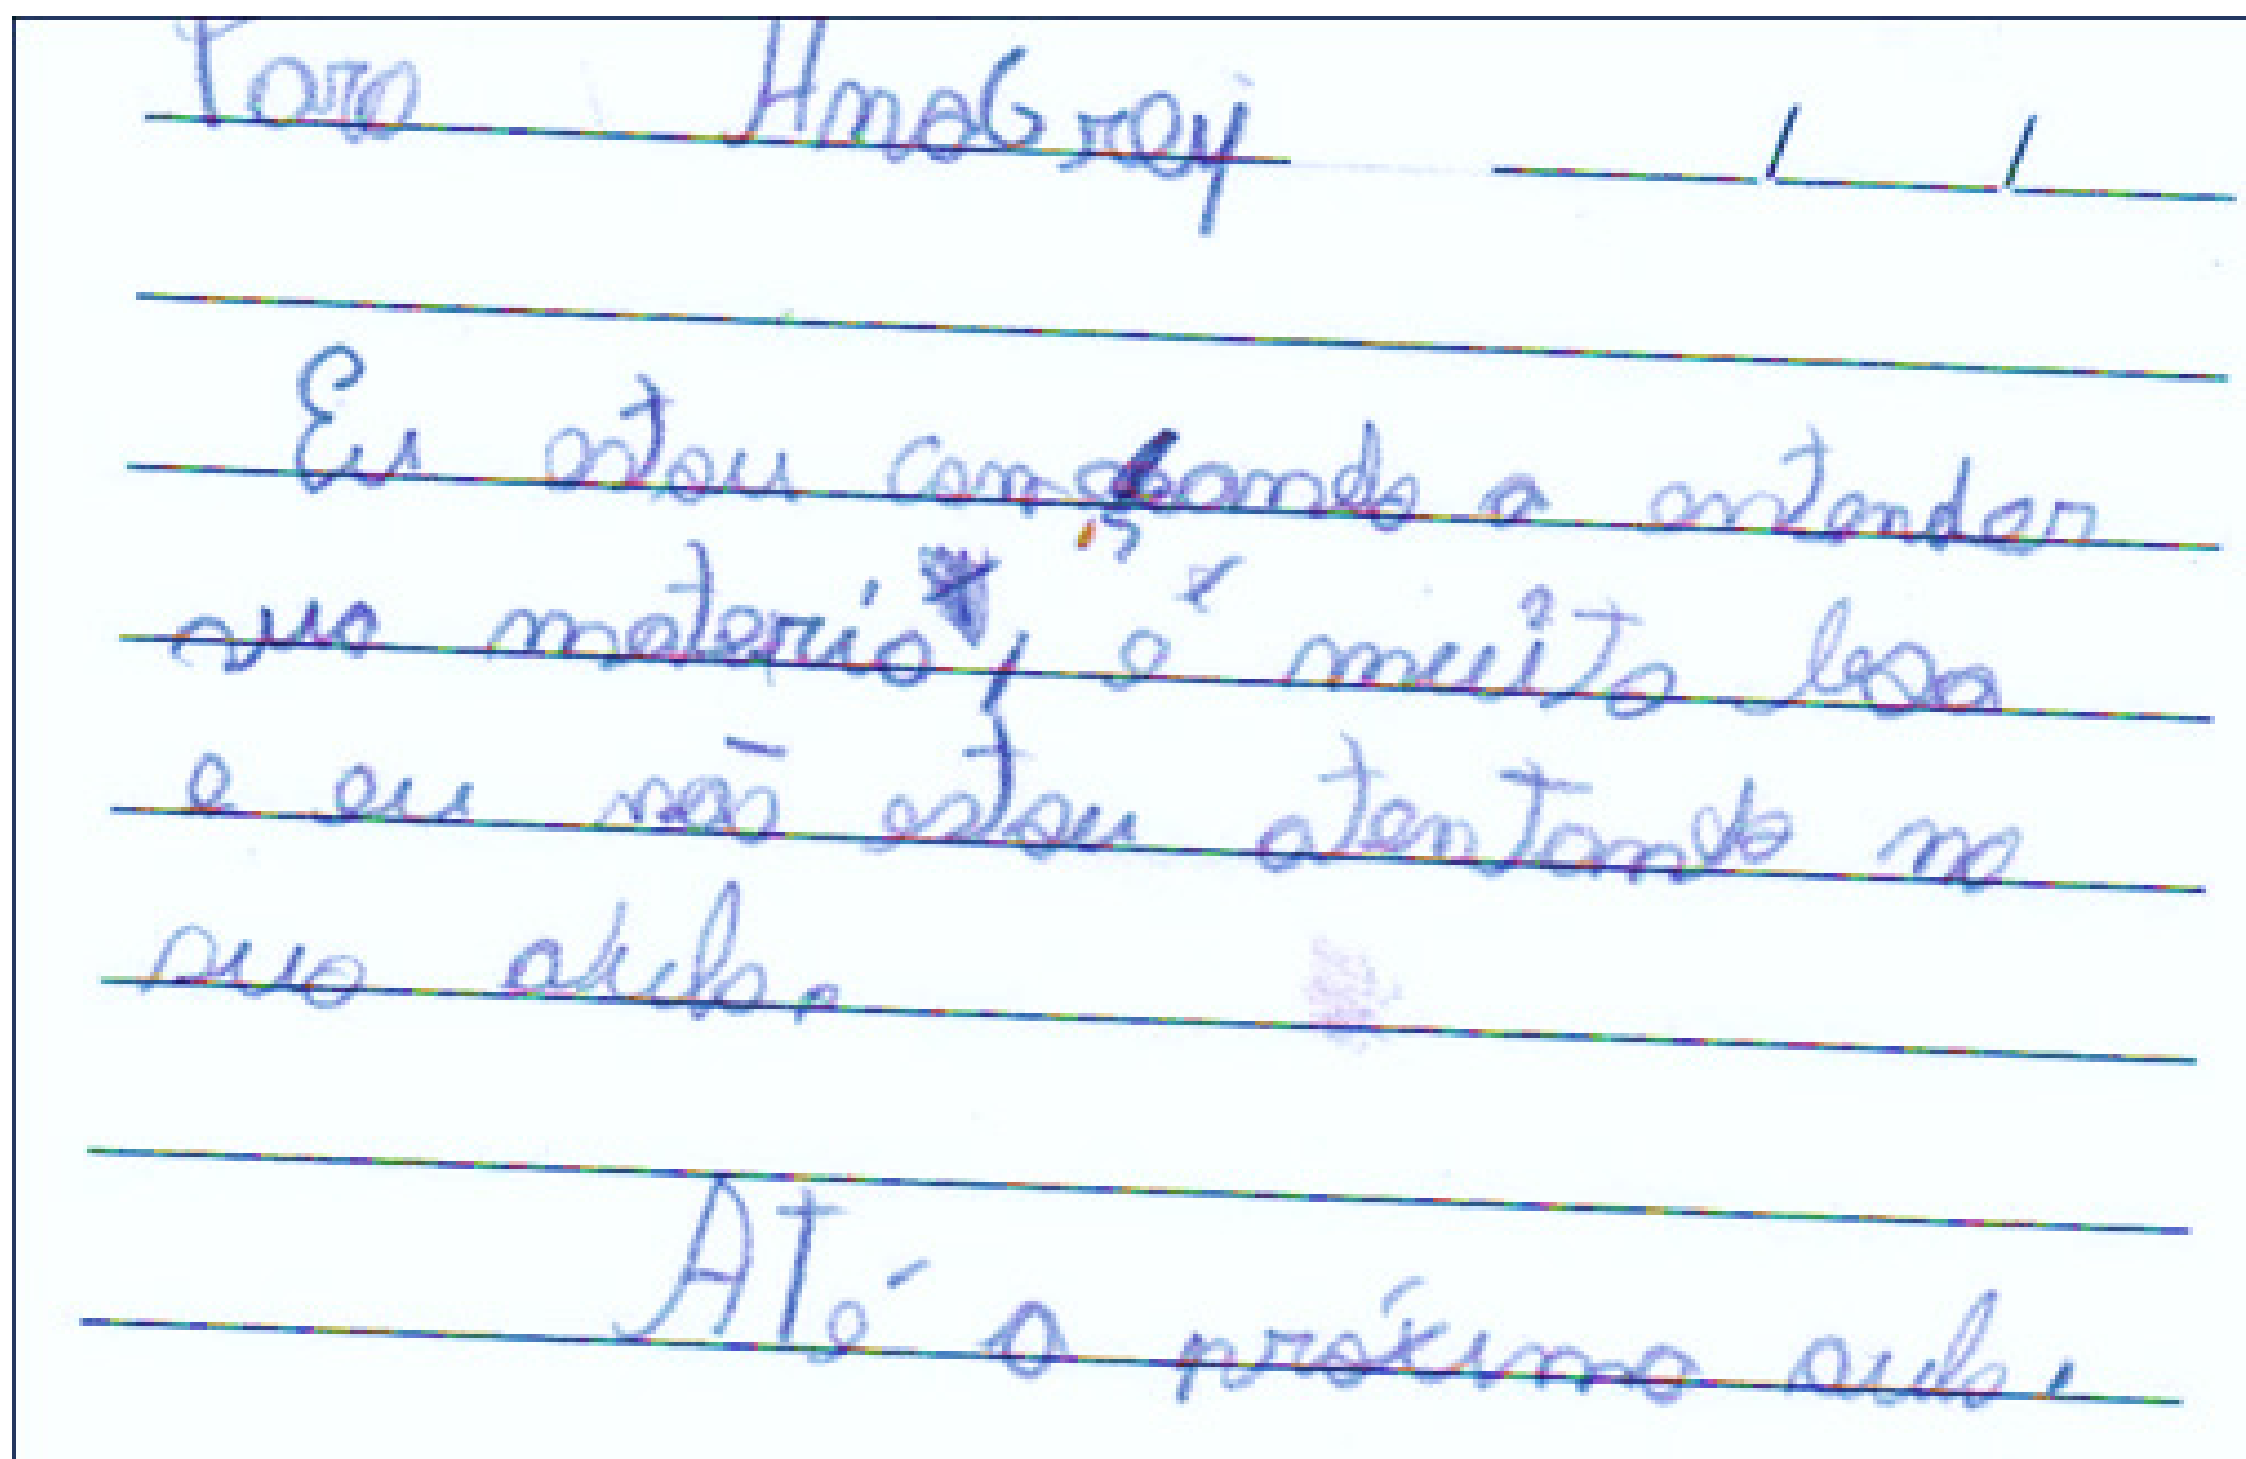 Para AnaGray
Eu estou começando a entender
sua materia, é muito boa
e eu não estou atentando na
sua aula.
Até a próxima aula,